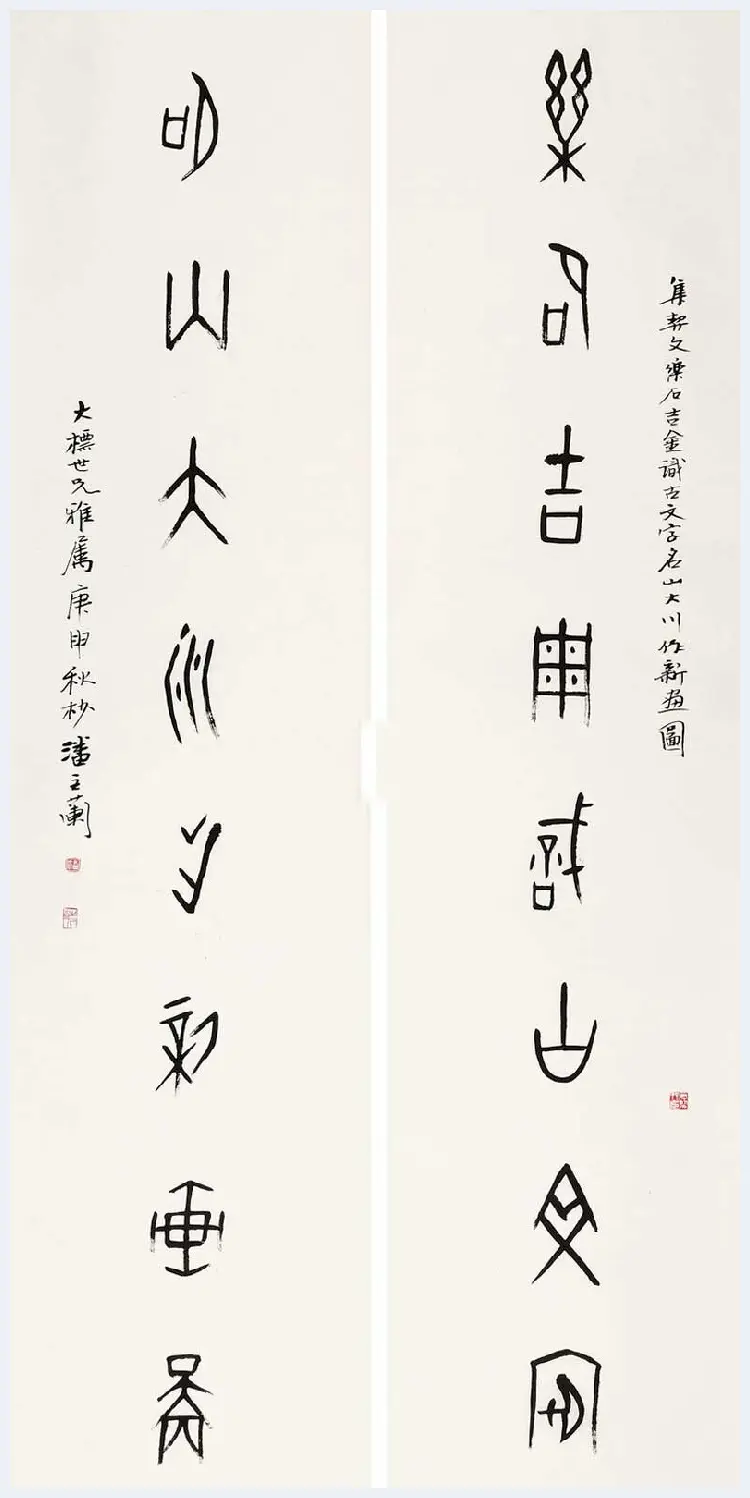 集契文樂石吉金識古文字名山大川作新畫圖
樂石吉金識古文字
名山大川作新畫圖
大標世兄雅屬庚申秋杪潘主蘭